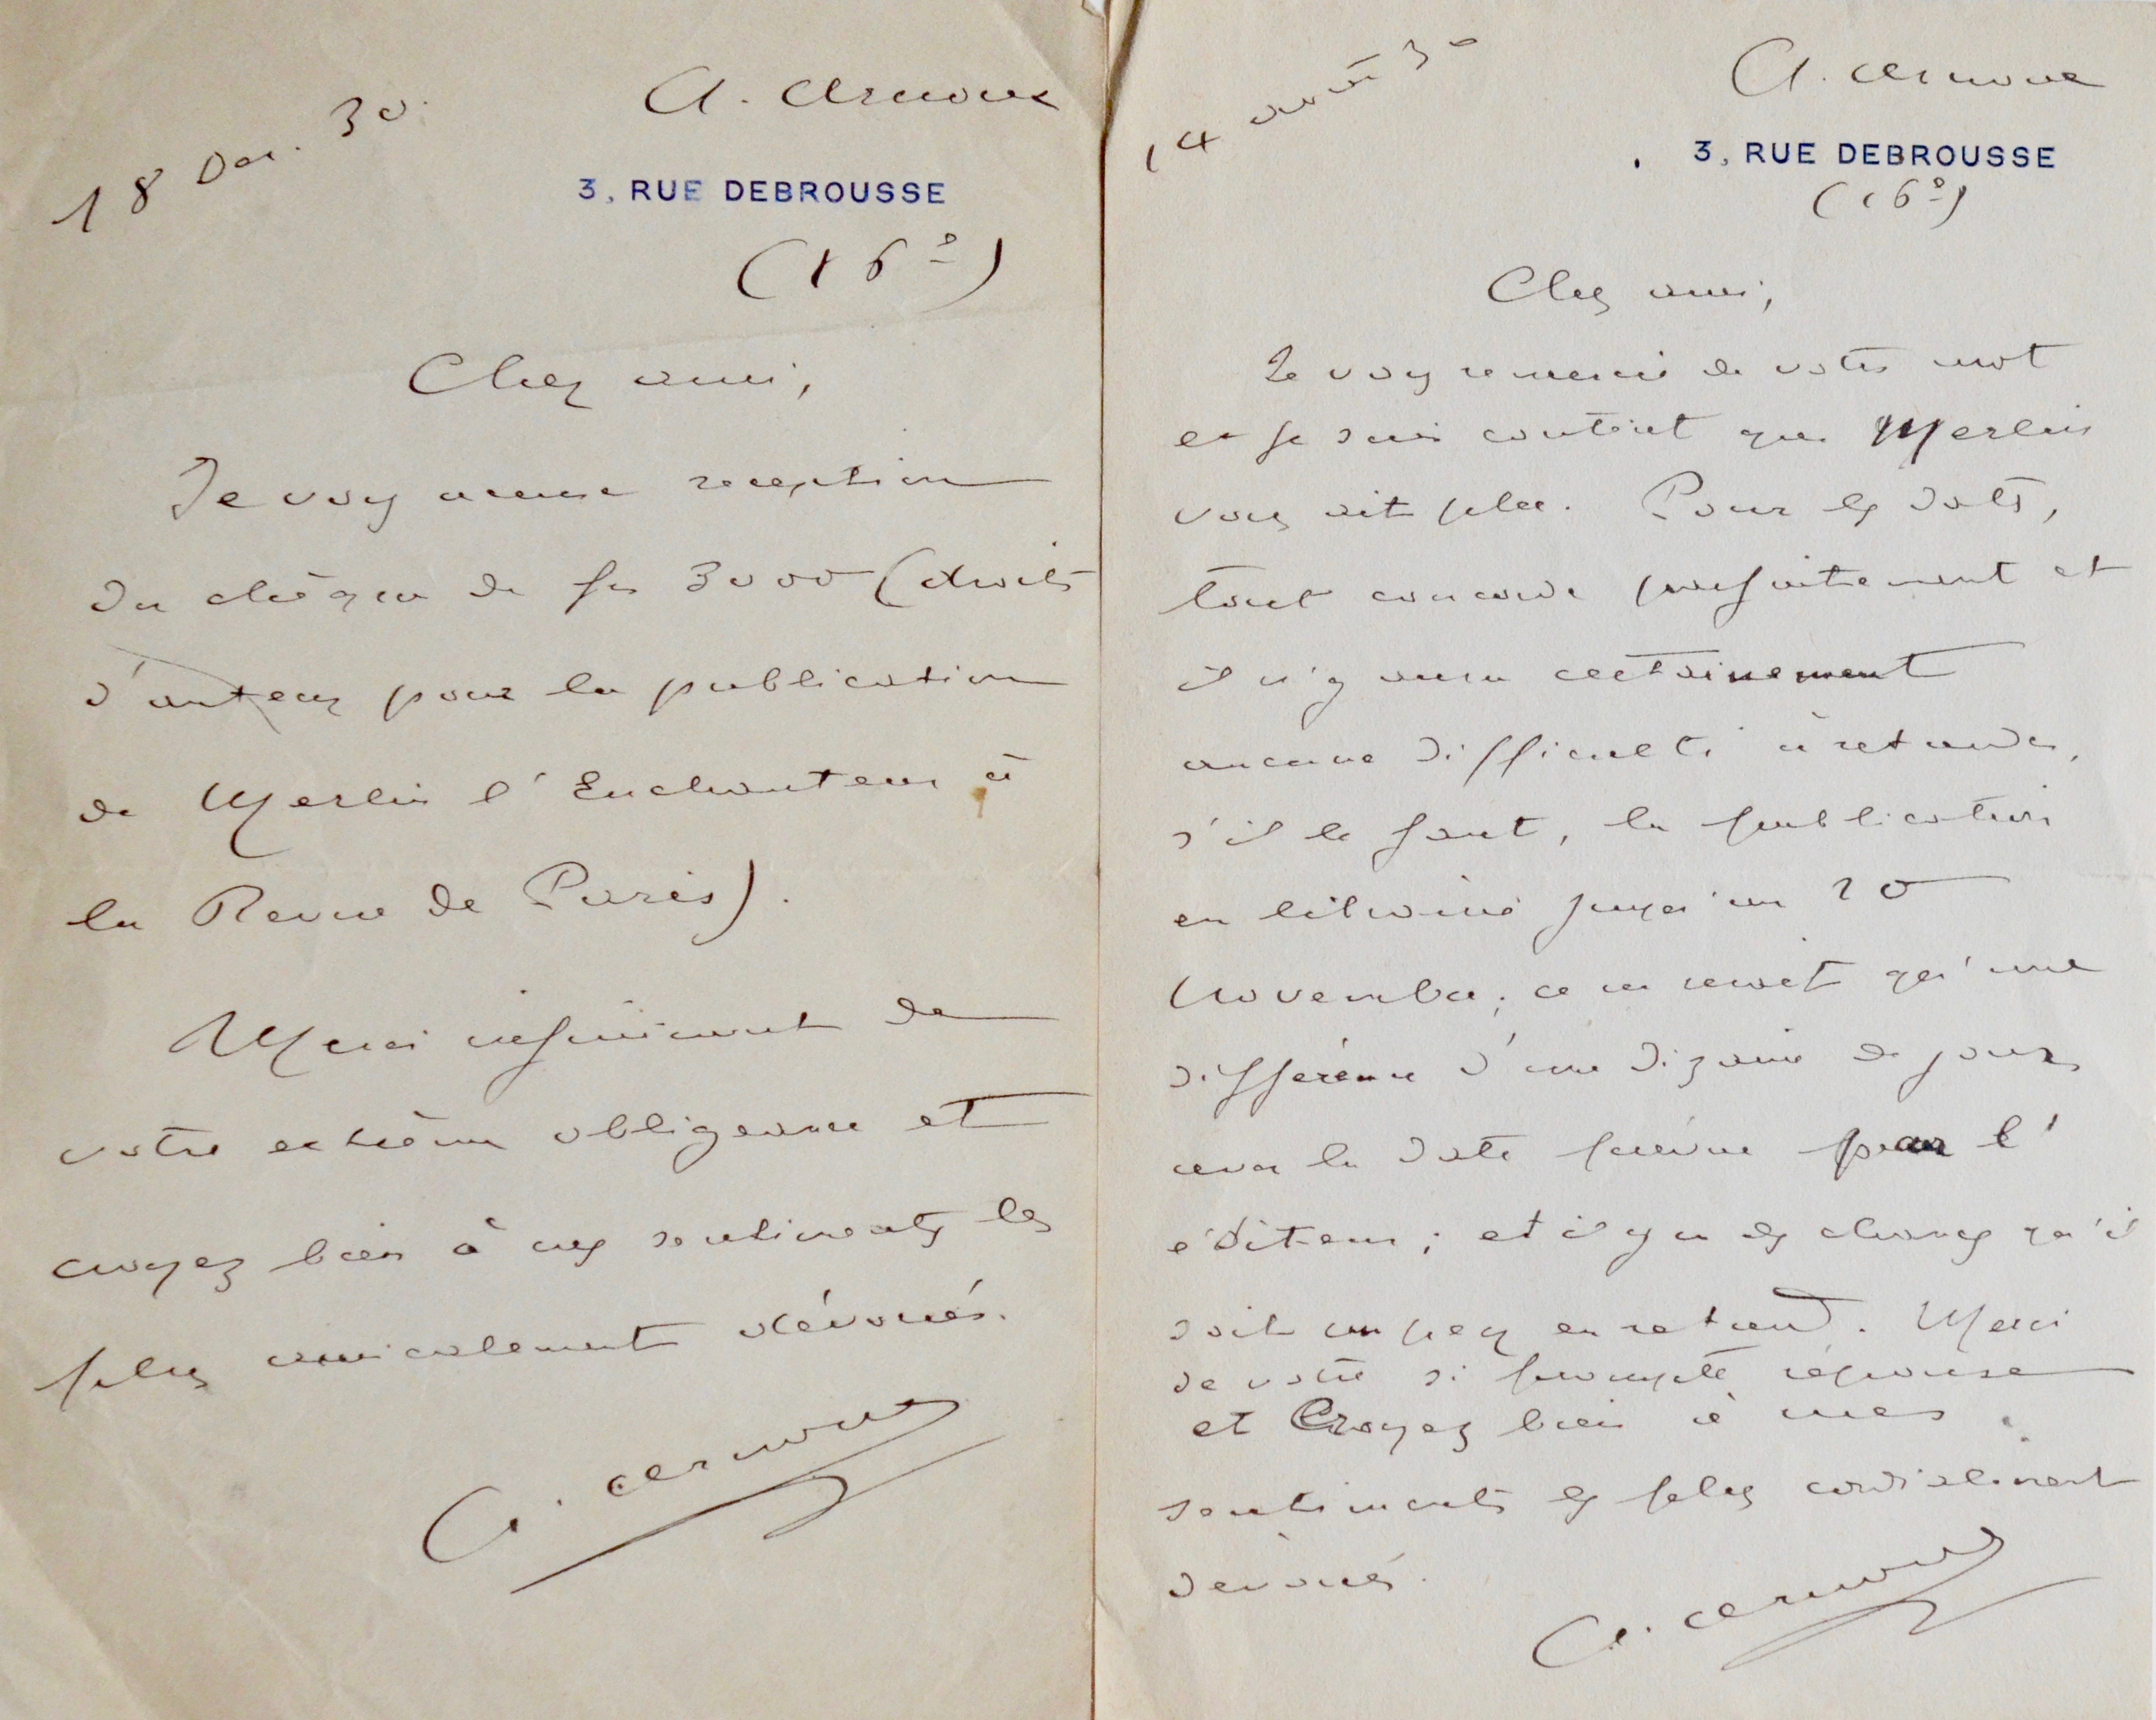 18 Dec. 30.
A. Arnoux
3, RUE DEBROUSSE
(16e)
Cher ami,
Je vous accuse reception
du chèque de frs 3000 (droits
d'auteur pour la publication
de Merlin l'Enchanteur à
la Revue de Paris).
Merci infiniment de
votre extrême obligeance et
croyez bien à mes sentiments les
plus amicalement dévoués.
A. Arnoux
14 août 30
A. Arnoux
3, RUE DEBROUSSE
(16e)
Cher ami,
Je vous remercie de votre mot
et je suis content que Merlin
vous ait plu. Pour les dates,
tout concorde parfaitement et
il n'y aura certainement
aucune difficulté à retarder,
s'il le faut, la publication
en librairie jusqu'au 20
Novembre; ce ne serait qu'une
différence d'une dizaine de jours
avec la date prévue par l'
éditeur; et il y a des chances qu'il
soit un peu en retard. Merci
de votre si prompte réponse
et Croyez bien à mes
sentiments les plus cordialement
dévoués.
A. Arnoux